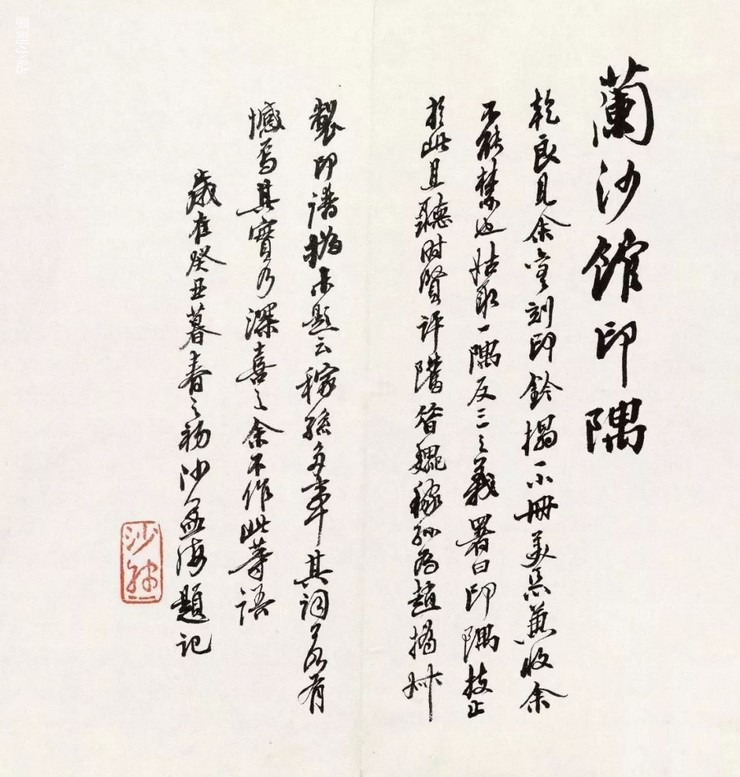 蘭沙館印隅
乾良見余刻印鈐搨小冊美惡兼收余
不能禁也姑取一隅反三之義署曰印隅技止
於此且聽時賢評隲昔魏稼孫為趙撝叔
製印譜撝叔題云稼孫多事其詞若有
憾焉其實乃深喜之余不作此等語
歲在癸丑暮春之初沙孟海題記